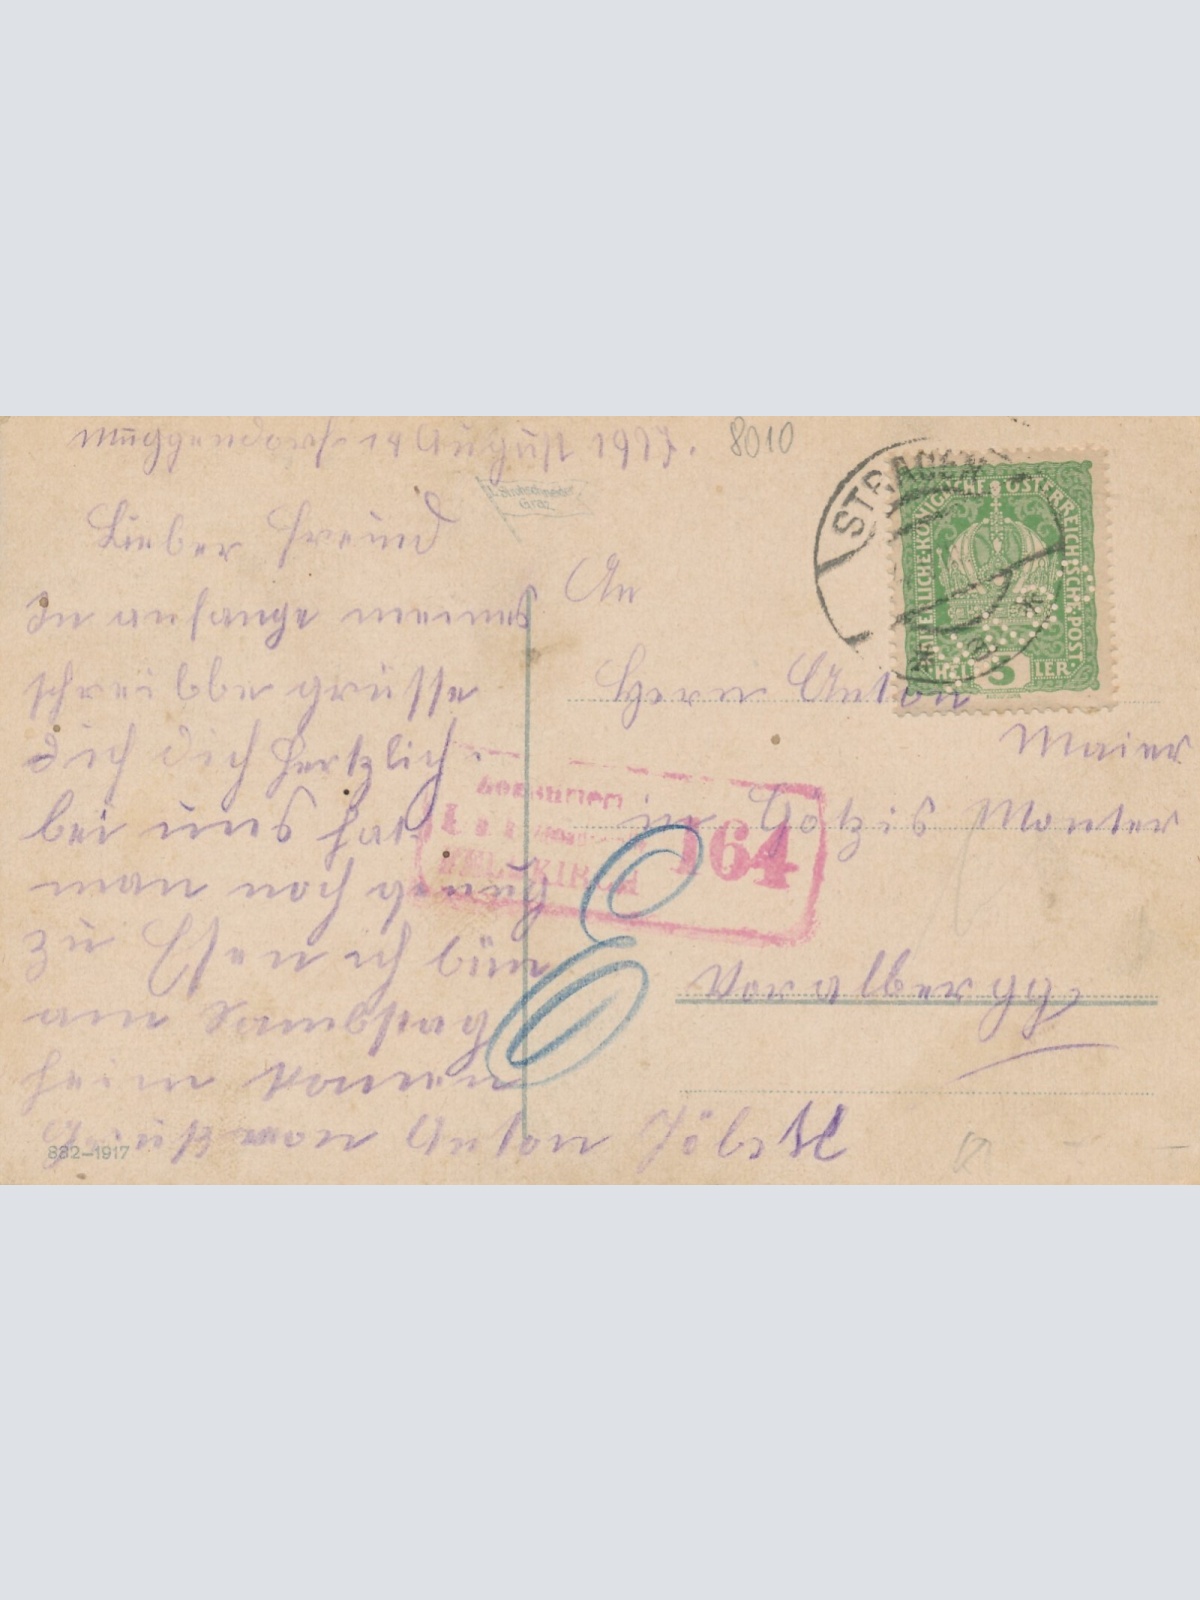 Muggendorf 14 August 1917.
8010
Graz
Lieber Freünd
In anfange meines
schreibbe grüsse
dich dich hertzlich
bei uns hat
man noch genug
zu Esen ich bün
am Sambstag
heim komen
Grüß von Anton Jöbstl
882–1917
An
Herrn Anton
Maier
in Götzis Monter
Voralbergg
STRAGEN
KAISERLICHE·KÖNIGLICHE ÖSTERREICHISCHE·POST·
HELLER
5
FELDKIRCH
164